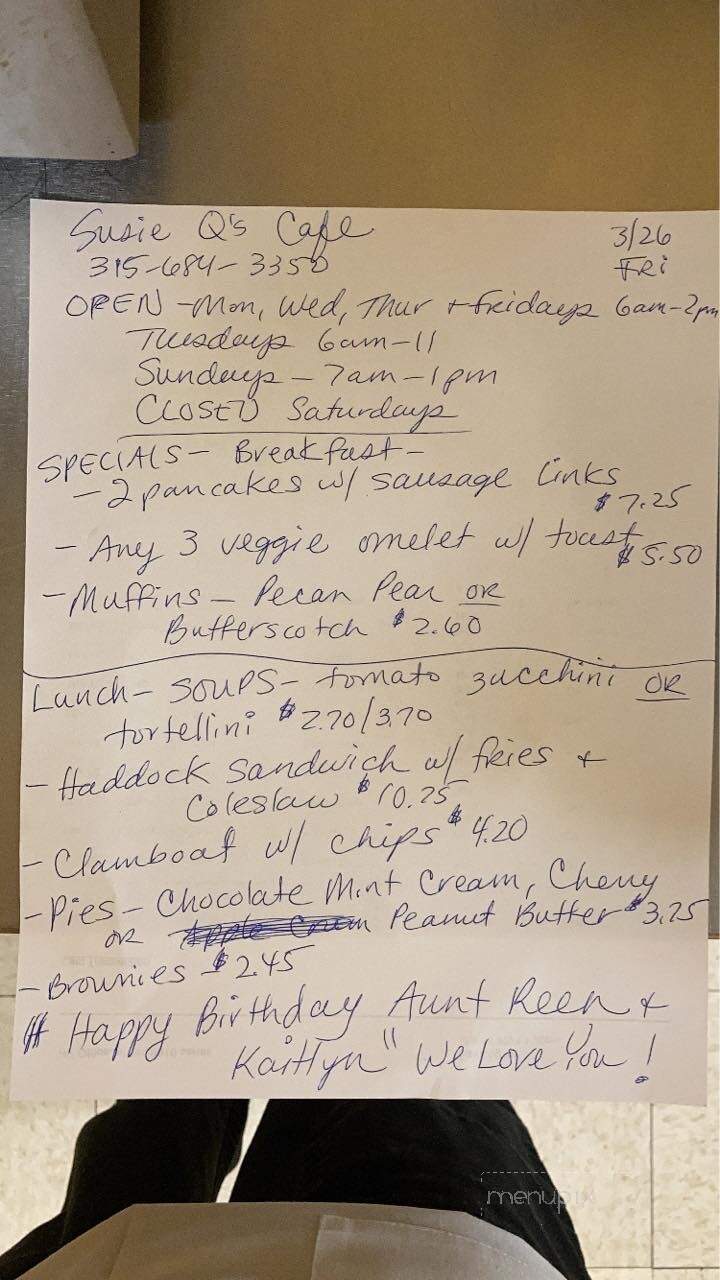 Susie Q's Cafe 3/26
315-684-3350 FRi
OPEN - Mon, Wed, Thur + fridays 6am-2pm
Tuesdays 6am-11
Sundays - 7am-1pm
CLOSED Saturdays
SPECIALS - Breakfast -
- 2 pancakes w/ sausage links
$7.25
- Any 3 veggie omelet w/ toast
$5.50
- Muffins - Pecan Pear OR
Butterscotch $2.60
Lunch - SOUPS - tomato zucchini OR
tortellini $2.70/3.70
- Haddock Sandwich w/ fries +
Coleslaw $10.25
- Clamboat w/ chips $4.20
- Pies - Chocolate Mint Cream, Cherry
OR Apple Cream Peanut Butter $3.25
- Brownies $2.45
" Happy Birthday Aunt Reen +
Kaitlyn" We Love You!
menupix